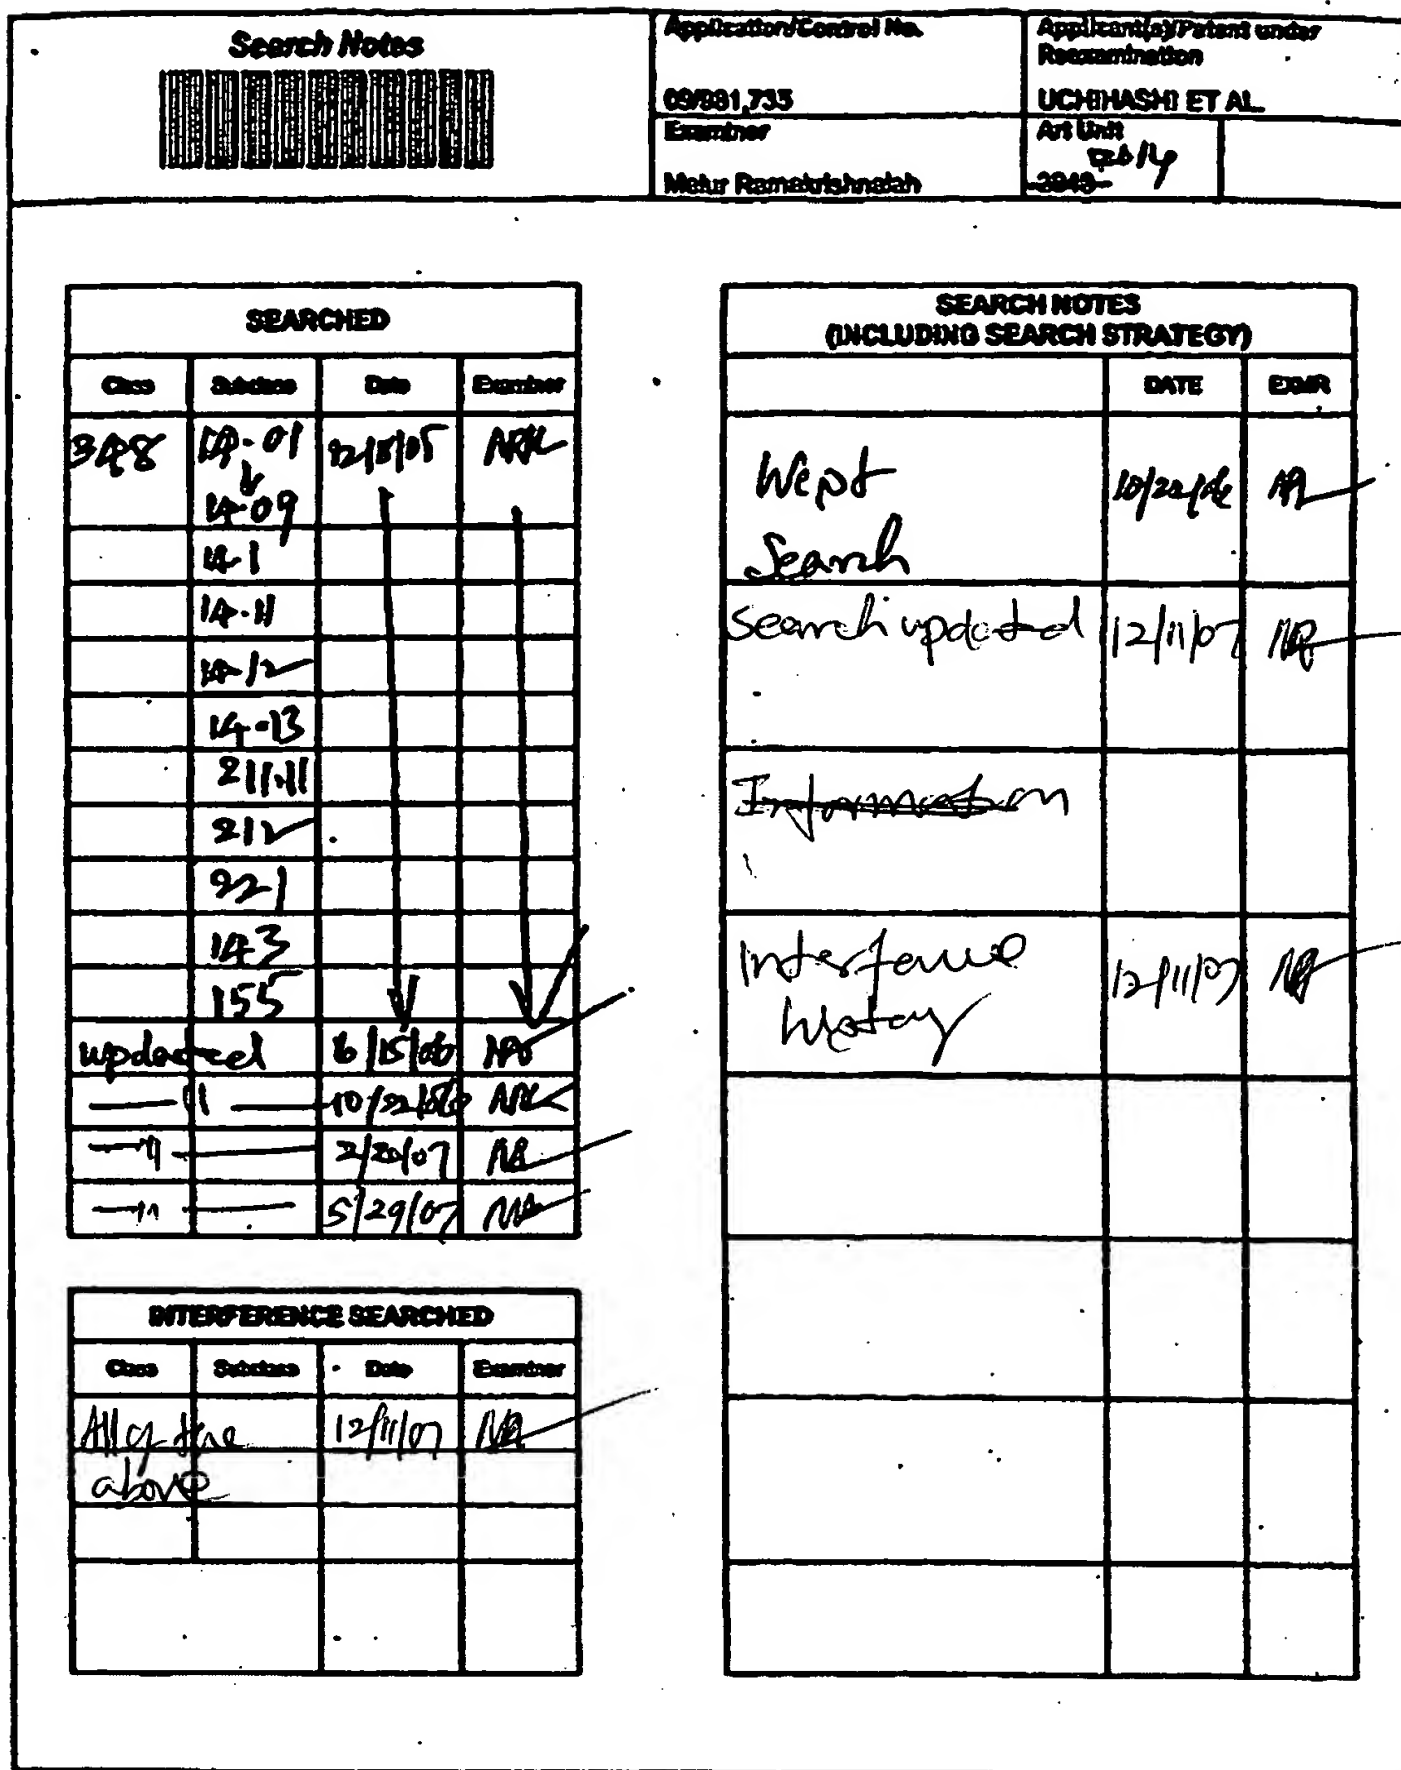 Search Notes
Application/Control No.
09/981,735
Applicant(s)/Patent under
Reexamination
UCHIHASHI ET AL.
Examiner
Melur Ramakrishnaiah
Art Unit
2614
2643
SEARCHED
Class Subclass Date Examiner
348 14.01 12/8/05
14.09
14.1
14.11
14.12
14.13
211.11
212
221
143
155
updated 6/15/06
— 11 — 10/22/06
— 11 — 2/20/07
— 11 — 5/29/07
INTERFERENCE SEARCHED
Class Subclass Date Examiner
All of the 12/11/07
above
SEARCH NOTES
(INCLUDING SEARCH STRATEGY)
DATE EXMR
West 10/22/06
Search
Search updated 12/11/07
Information
Interference 12/11/07